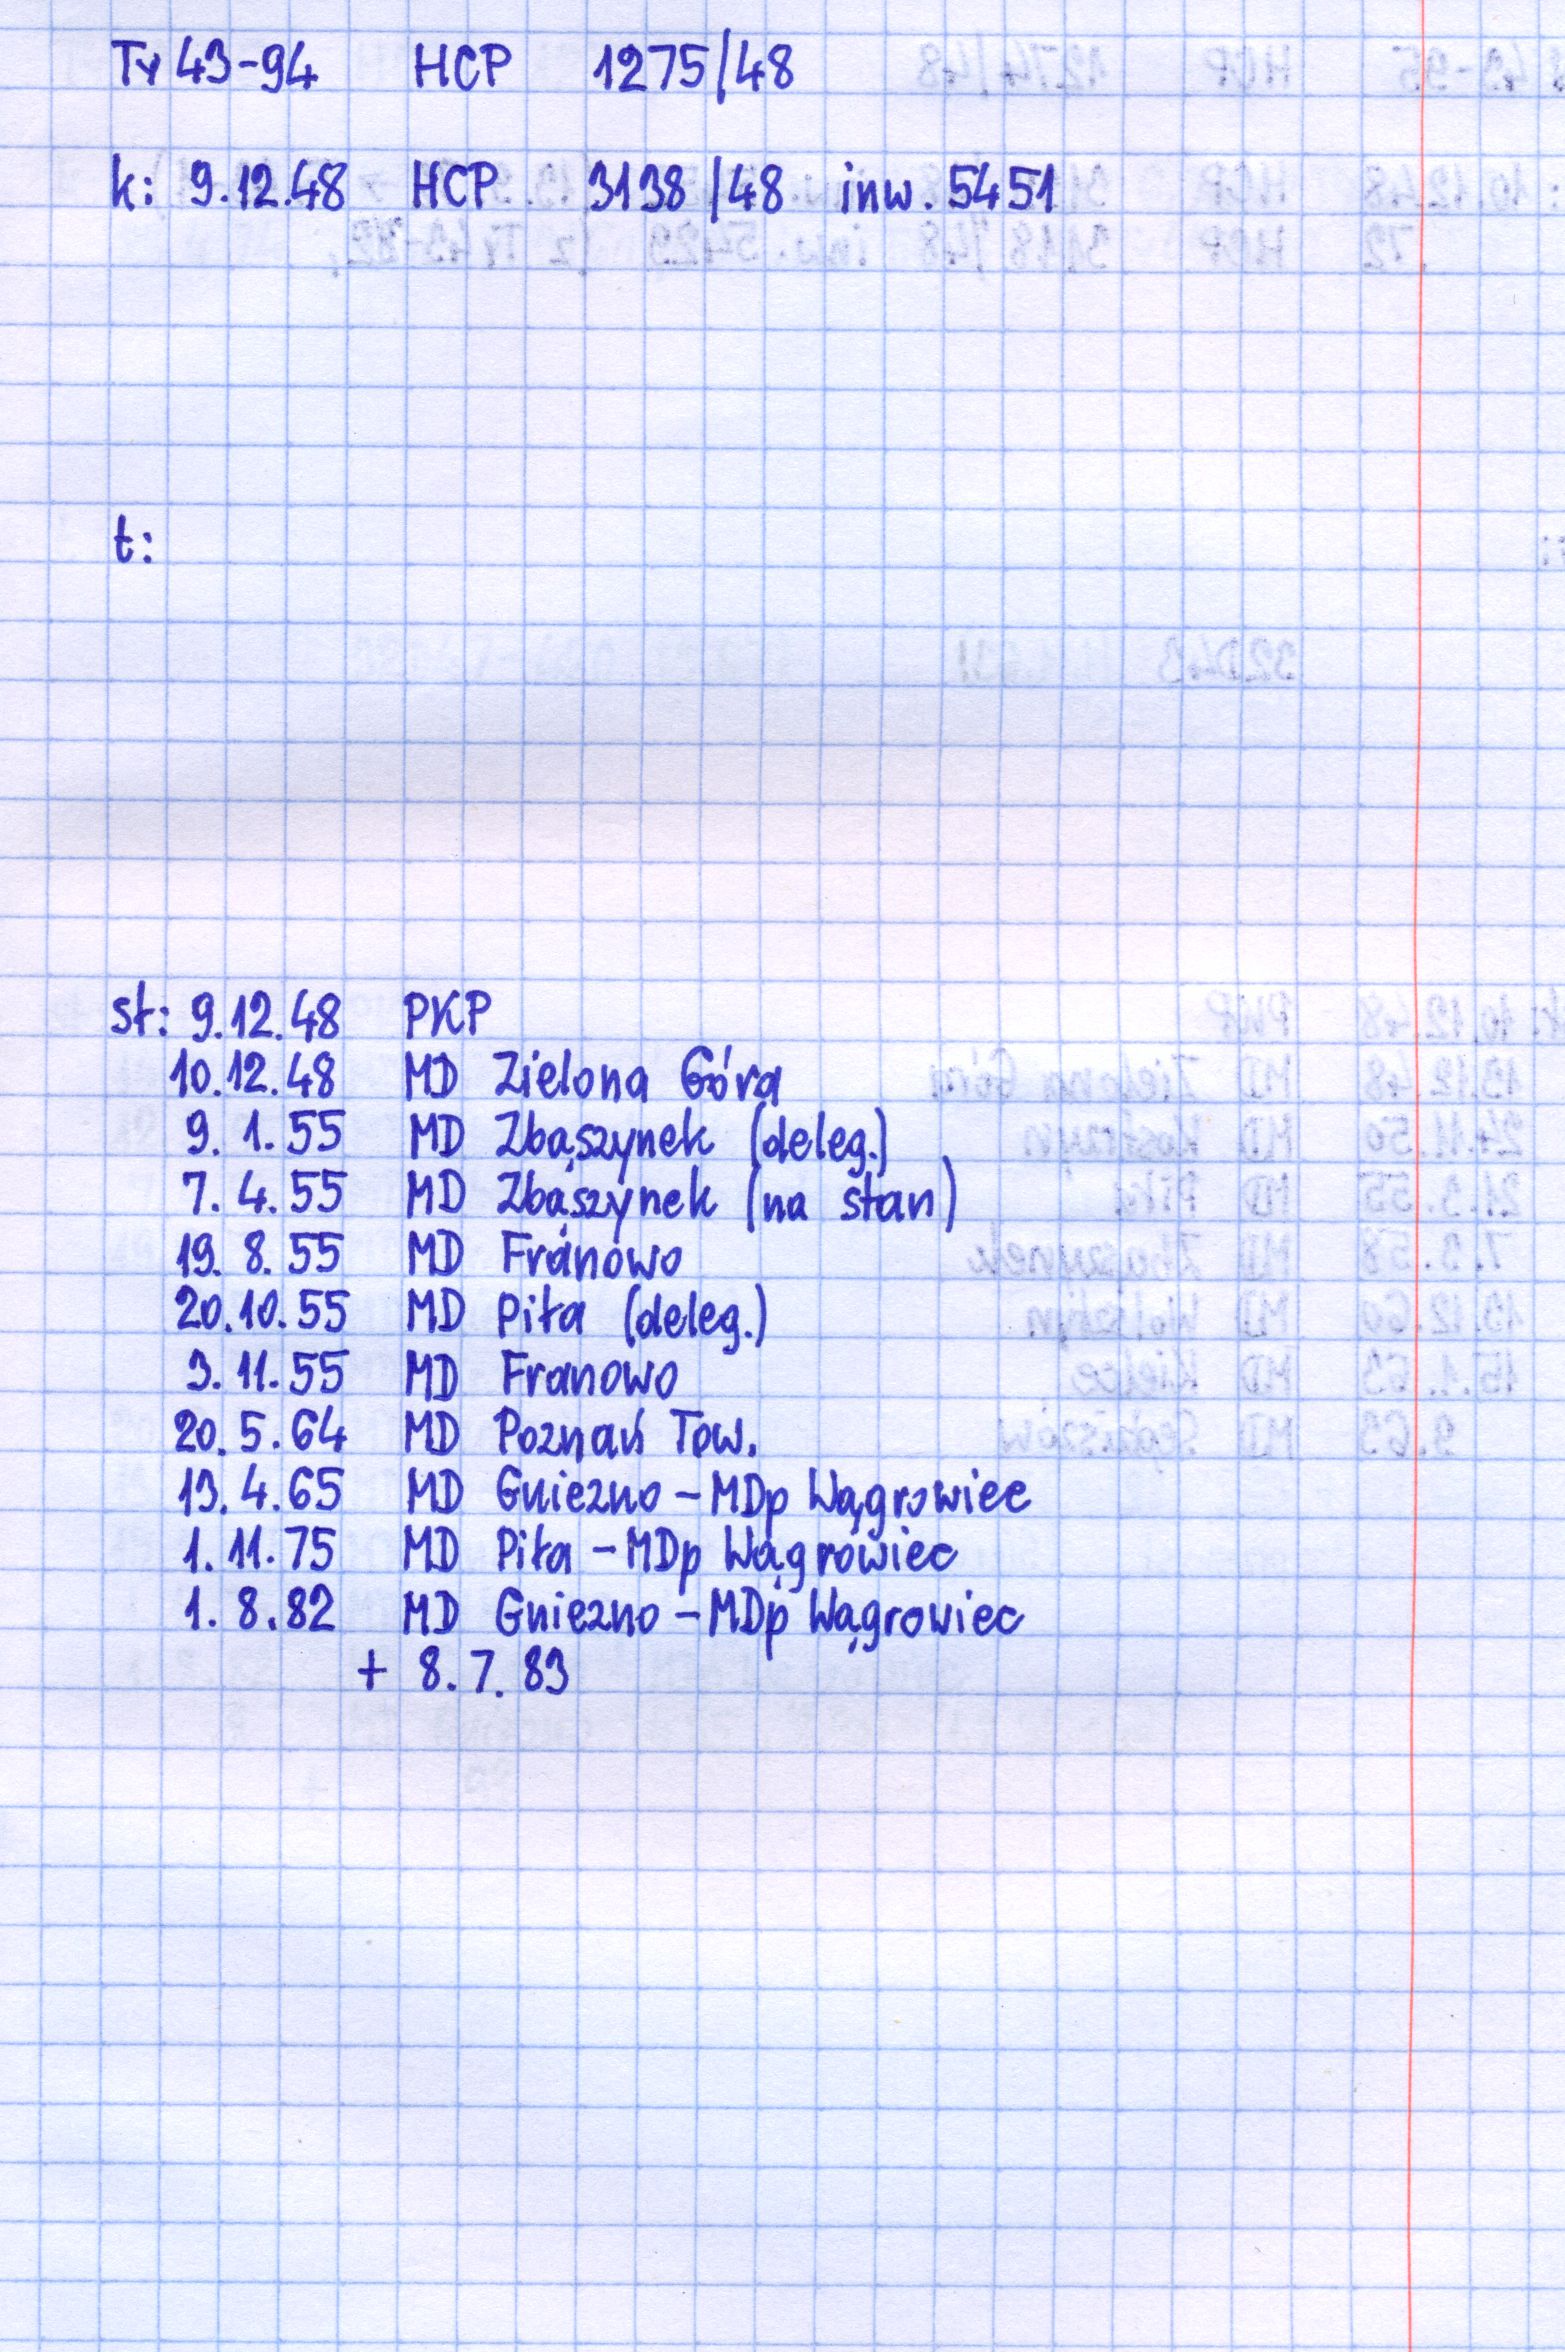 Ty 43-94 HCP 1275/48
k: 9.12.48 HCP 3138/48 inw. 5451
t:
st: 9.12.48 PKP
10.12.48 MD Zielona Góra
9. 1. 55 MD Zbąszynek (deleg.)
7. 4. 55 MD Zbąszynek (na stan)
19. 8. 55 MD Franowo
20.10.55 MD Piła (deleg.)
3. 11. 55 MD Franowo
20. 5. 64 MD Poznań Tow.
13. 4. 65 MD Gniezno - MDp Wągrowiec
1. 11. 75 MD Piła - MDp Wągrowiec
1. 8. 82 MD Gniezno - MDp Wągrowiec
+ 8. 7. 83